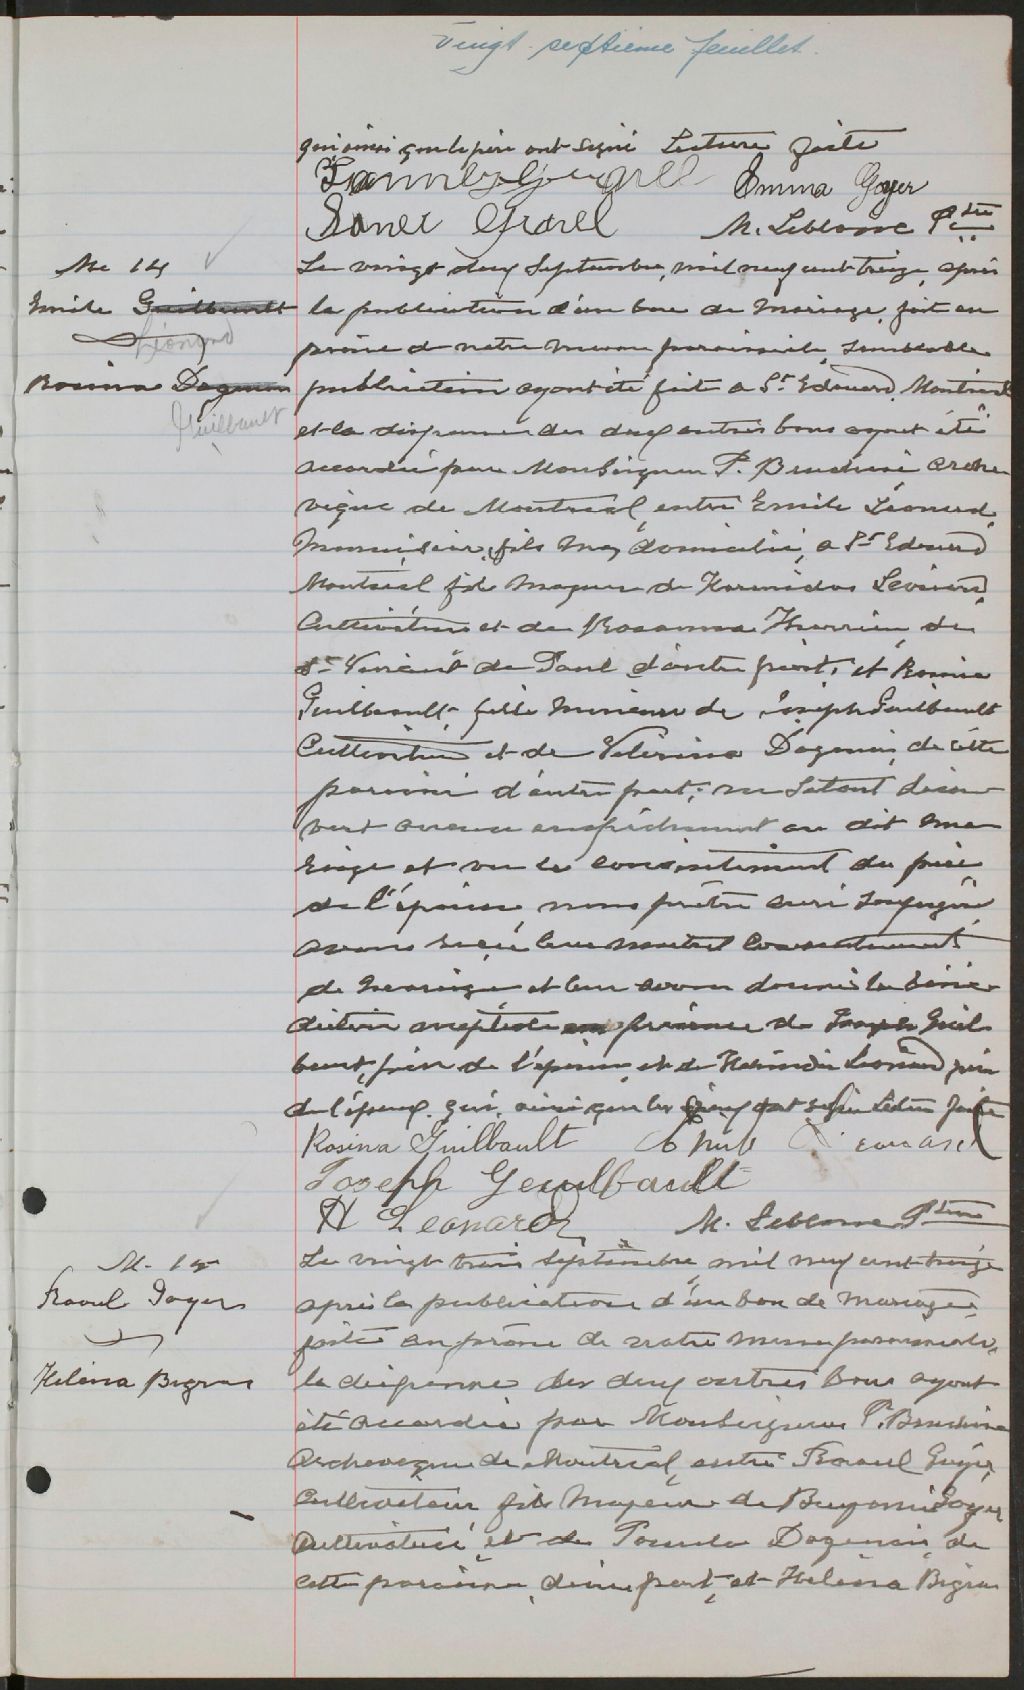 Vingt septieme feuillet.
qui ainsi que le père ont signé Lecture faite
Emma Goyer
M. Leblanc Ptre
M. 14
Emile Guilbault
Léonard
Rosina Dagenais
Guilbault
Le vingt deux Septembre, mil neuf cent treize, après
la publication d'un ban de mariage, fait au
prône de notre messe paroissiale, semblable
publication ayant été fait a St Edouard, Montréal
et la dispense des deux autres bans ayant été
accordée par Monseigneur P. Bruchési arche
vêque de Montreal, entre Emile Léonard,
domicilié, a St Edouard
Montréal fils majeur de Hormidas Léonard,
Cultivateur et de Rosanna Therrien, de
St Vincent de Paul d'autre part, et Rosina
Guilbault, fille mineure de Joseph Guilbault
Cultivateur et de Dagenais, de cette
paroisse d'autre part; ne s'étant décou
vert aucun empêchement au dit ma
riage et vu le consentement du père
de l'épouse, nous prêtre curé soussigné
avons reçu leur mutuel consentement
de mariage et leur avons donné la béné
diction nuptiale en présence de Joseph Guil
bault, père de l'épouse, et de Hormidas Léonard père
de l'époux qui, ainsi que les époux ont signé Lecture faite
Rosina Guilbault
Joseph Geuilbault
H Leonard M. Leblanc Ptre
M. 15
Raoul Goyer
Helena Bigras
Le vingt trois septembre, mil neuf cent treize
après la publication d'un ban de mariage,
faite au prône de notre messe paroissiale,
la dispense des deux autres bans ayant
été accordée par Monseigneur P. Bruchési
Archevêque de Montreal, entre Raoul Goyer,
Cultivateur fils majeur de Benjamin Goyer
Cultivateur et de Dagenais, de
cette paroisse, d'une part, et Helena Bigras